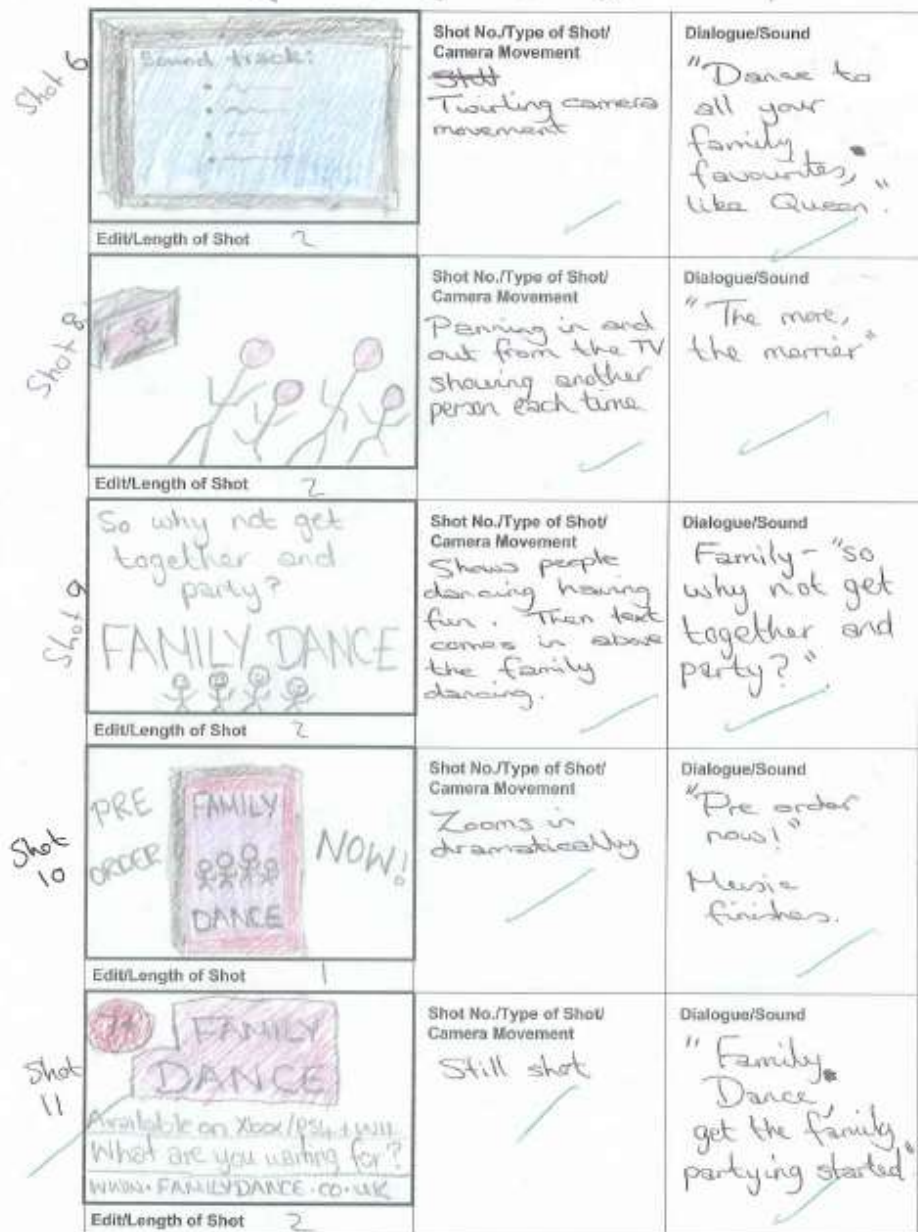 Shot 6
Sound track:
Shot No./Type of Shot/
Camera Movement
Twirling camera
movement
Dialogue/Sound
"Dance to
all your
family
favourites,
like Queen."
Edit/Length of Shot 2
Shot 8
Shot No./Type of Shot/
Camera Movement
Panning in and
out from the TV
showing another
person each time
Dialogue/Sound
"The more,
the merrier"
Edit/Length of Shot 2
Shot 9
So why not get
together and
party?
FAMILY DANCE
Shot No./Type of Shot/
Camera Movement
Shows people
dancing having
fun. Then text
comes in above
the family
dancing.
Dialogue/Sound
Family - "so
why not get
together and
party?"
Edit/Length of Shot 2
Shot
10
PRE
ORDER
FAMILY
DANCE
NOW!
Shot No./Type of Shot/
Camera Movement
Zooms in
dramatically
Dialogue/Sound
"Pre order
now!"
Music
finishes.
Edit/Length of Shot 1
Shot
11
7+
FAMILY
DANCE
Available on Xbox/PS4 + WII
What are you waiting for?
WWW.FAMILYDANCE.CO.UK
Shot No./Type of Shot/
Camera Movement
Still shot
Dialogue/Sound
"Family
Dance,
get the family
partying started"
Edit/Length of Shot 2